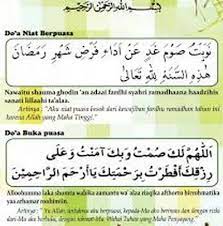 بِسْمِ اللهِ الرَّحْمٰنِ الرَّحِيْمِ
Do'a Niat Berpuasa
نَوَيْتُ صَوْمَ غَدٍ عَنْ اَدَاءِ فَرْضِ شَهْرِ رَمَضَانَ
هٰذِهِ السَّنَةِ لِلّٰهِ تَعَالَى
Nawaitu shauma ghodin 'an adaai fardhi syahri ramadhaana haadzihis
sanati lillaahi ta'aalaa.
Artinya : "Aku niat puasa besok dari kewajiban fardhu ramadhan tahun ini
karena Allah yang Maha Tinggi."
Do'a Buka puasa
اَللّٰهُمَّ لَكَ صُمْتُ وَبِكَ اٰمَنْتُ وَعَلَى
رِزْقِكَ اَفْطَرْتُ بِرَحْمَتِكَ يَااَرْحَمَ الرَّاحِمِيْنَ
Alloohumma laka shumtu wabika aamantu wa'alaa rizqika afthortu birohmatika
yaa arhamar roohimiin.
Artinya : "Ya Allah, untukMu aku berpuasa, kepada-Mu aku beriman dan dengan